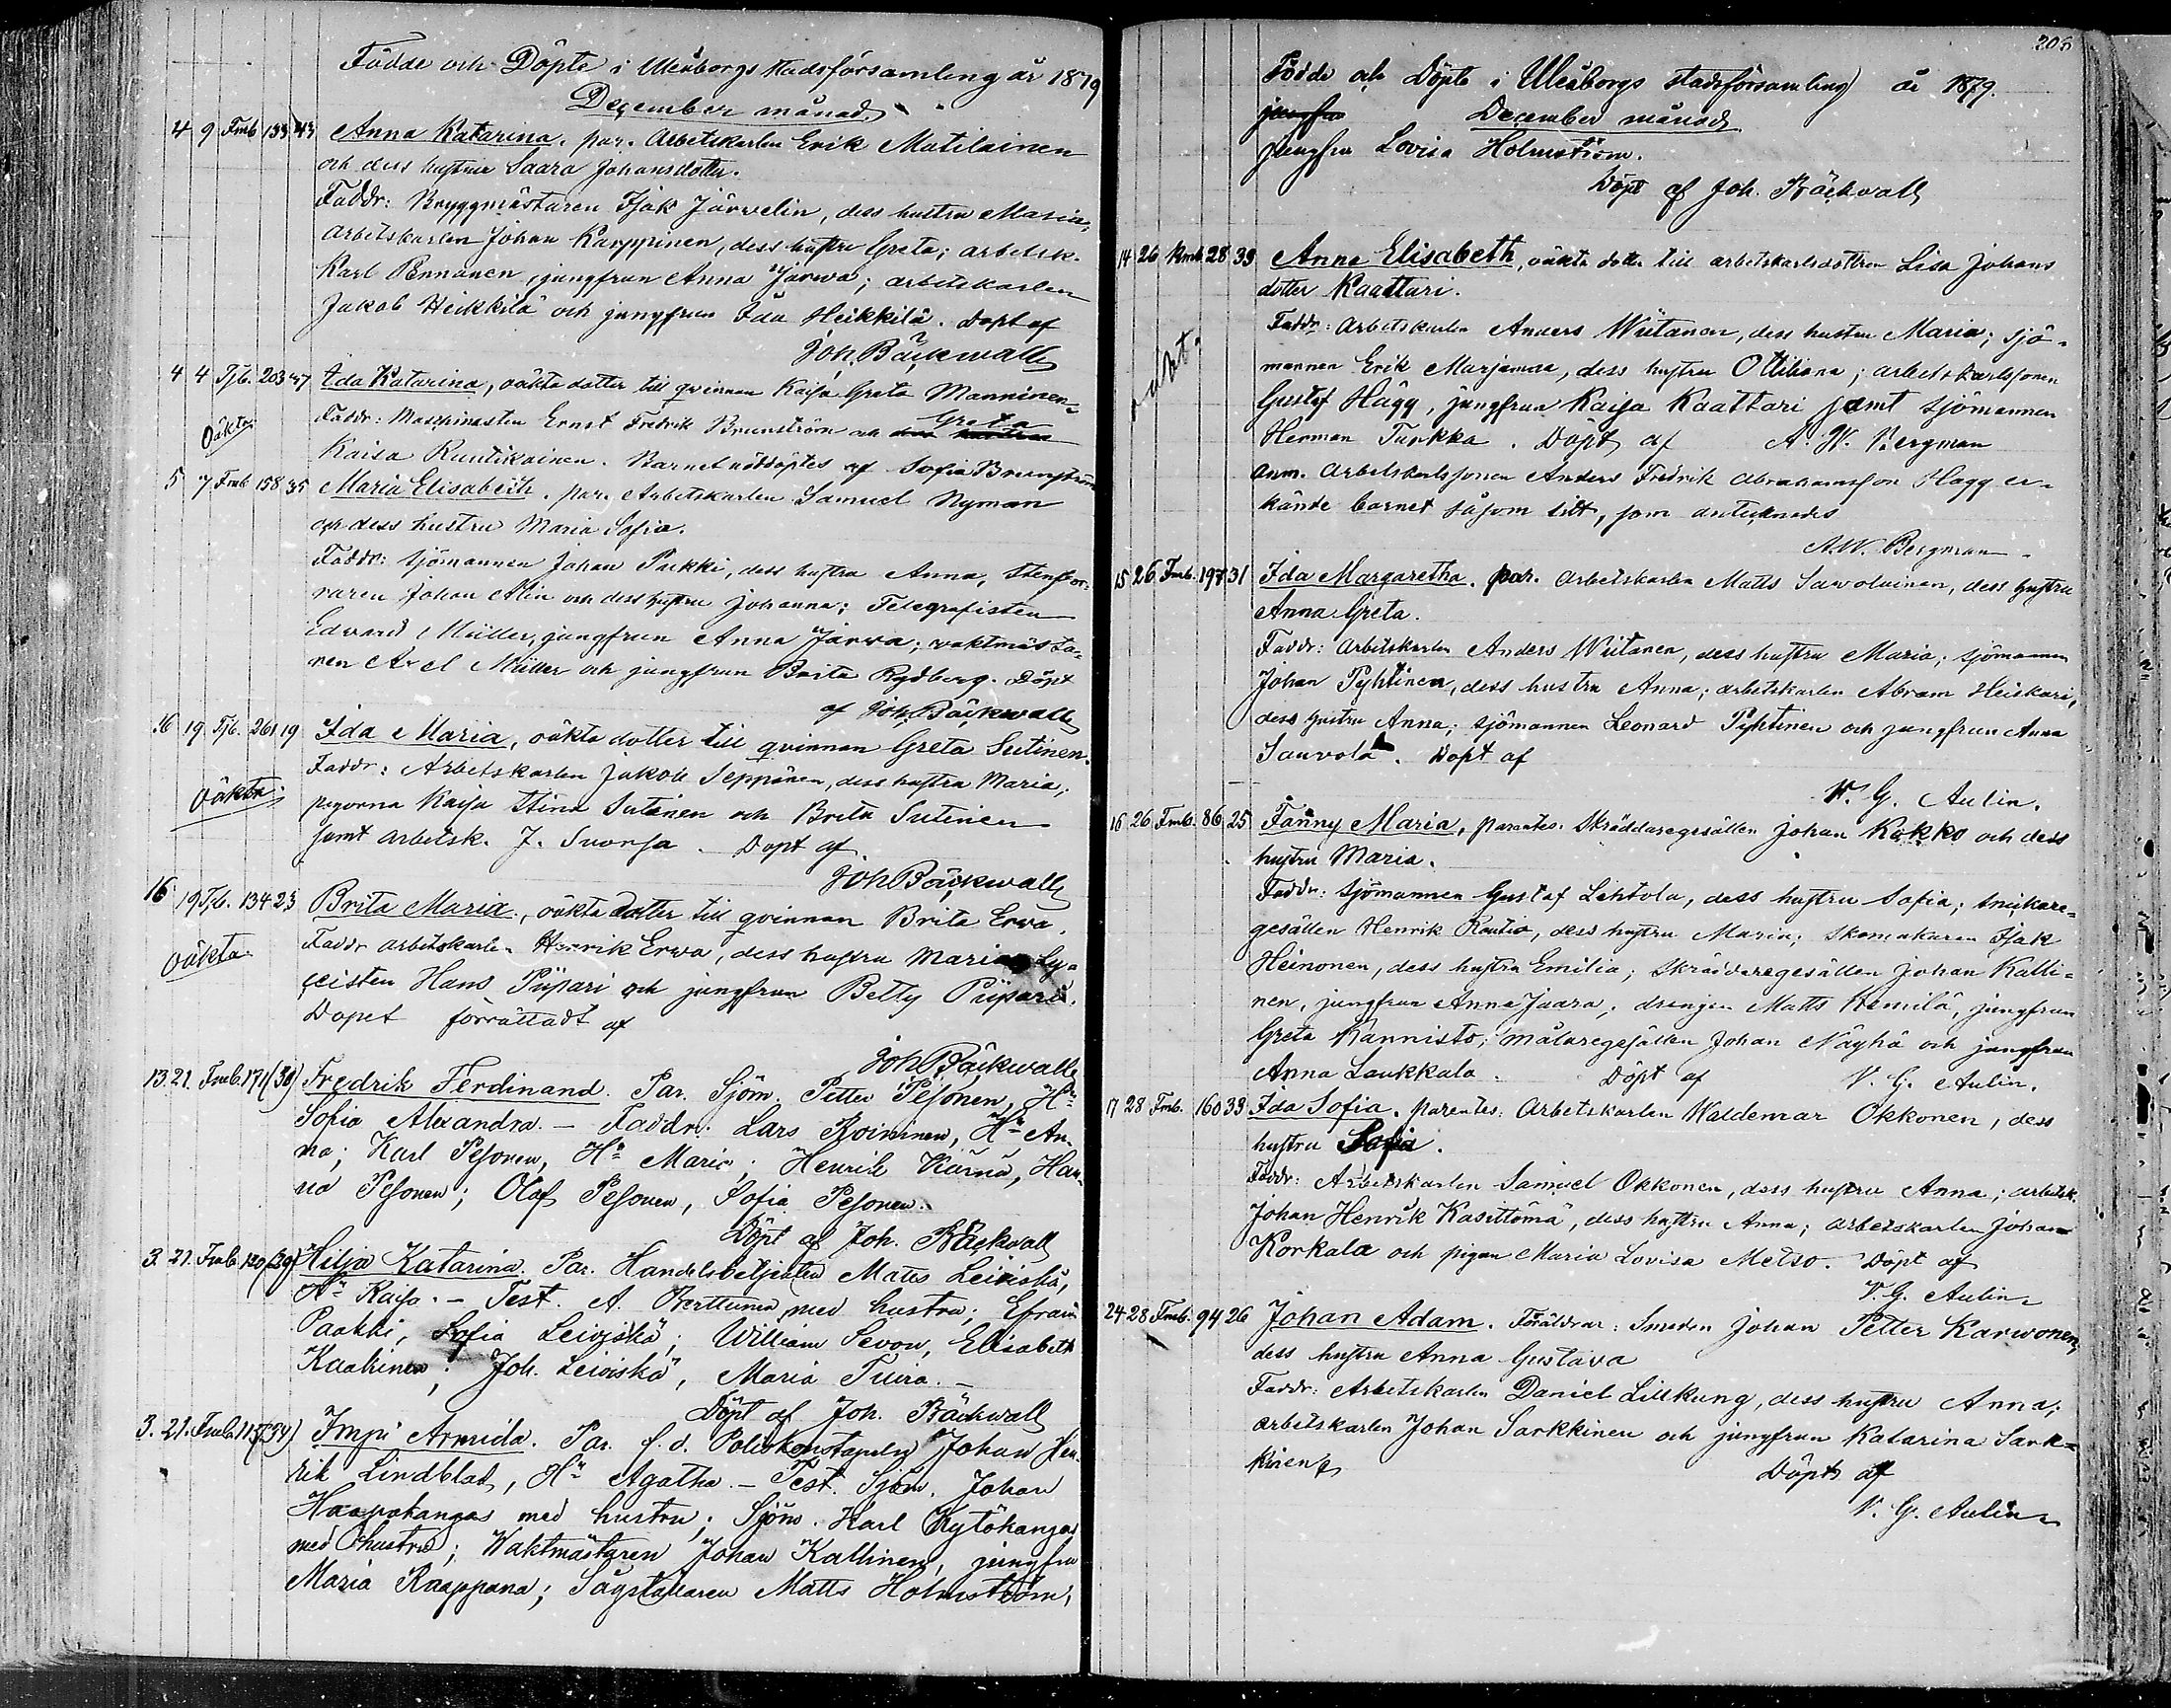 Födde och Döpte i Uleåborgs stadsförsamling år 1879
December månad
4 9 Fmb 133 43 Anna Katarina. par. Arbetskarlen Erik Matilainen
och dess hustru Saara Johansdotter.
Faddr: Bryggmästaren Isak Järvelin, dess hustru Maria;
arbetskarlen Johan Karppinen, dess hustru Greta; arbetsk.
Karl Pennanen, jungfrun Anna Jarwa; arbetskarlen
Jakob Heikkilä och jungfrun Ida Heikkilä. Döpt af
Joh. Bäckwall
4 4 Tjb. 203 47 Ida Katarina, oäkta dotter till qvinnan Kaisa Greta Manninen.
Oäkta Faddr: Maschinisten Ernst Fredrik Brunström och Greta
Kaisa Runtikainen. Barnet nöddöptes af Sofia Brunström
5 7 Fmb 158 35 Maria Elisabeth. par. Arbetskarlen Samuel Nyman
och dess hustru Maria Sofia.
Faddr: sjömannen Johan Parkki, dess hustru Anna, stenfo-
raren Johan Alin och dess hustru Johanna; Telegrafisten
Edvard Müller, jungfrun Anna Jarva; vaktmästa-
ren Axel Müller och jungfrun Brita Rydberg. Döpt
af Joh. Bäckwall
16 19 Tjb. 261 19 Ida Maria, oäkta dotter till qvinnan Greta Sutinen.
Faddr: Arbetskarlen Jakob Seppänen, dess hustru Maria;
oäkta: pigorna Kaisa Stina Sutinen och Brita Sutinen
samt arbetsk. J. Suorsa. Döpt af
Joh Bäckwall
16 19 Tjb. 134 23 Brita Maria, oäkta dotter till qvinnan Brita Erwa.
oäkta Faddr arbetskarlen Henrik Erwa, dess hustru Maria, Ly-
ceisten Hans Piipari och jungfrun Betty Piipari.
Dopet förrättadt af
Joh Bäckwall
13. 21. Fmb. 171 (38) Fredrik Ferdinand. Par. Sjöm. Petter Pesonen, Hu
Sofia Alexandra. – Faddr: Lars Roininen, Hu An-
na; Karl Pesonen, Hu Maria; Henrik Kärnä, Han-
na Pesonen; Olof Pesonen, Sofia Pesonen.
Döpt af Joh. Bäckwall
3. 21. Fmb. 120 (29) Hilja Katarina. Par. Handelsbetjenten Matts Leiviskä,
Hu Kaisa. – Test. A. Berttunen med hustru; Efraim
Paakki, Sofia Leiviskä; William Sevon, Elisabeth
Kaakinen; Joh. Leiviskä, Maria Tuira. –
Döpt af Joh. Bäckwall
3. 21. Fmb. 115 (34) Impi Armida. Par. f.d. Poliskonstapeln Johan Hen-
rik Lindblad, Hu Agatha. – Test. Sjöm. Johan
Haapakangas med hustru; Sjöm. Karl Kytökangas
med hustru; Waktmästaren Johan Kallinen, jungfru
Maria Raappana; Sågställaren Matts Holmström,
206
Födde och Döpte i Uleåborgs stadsförsamling år 1879.
jungfru December månad
jungfru Lovisa Holmström.
Döpt af Joh. Bäckwall
14 26 Kmb 28 33 Anna Elisabeth, oäkta dotter till arbetskarlsdottren Lisa Johans
dotter Kaattari.
Faddr: Arbetskarlen Anders Wiitanen, dess hustru Maria; sjö-
mannen Erik Marjamaa, dess hustru Ottiliana; arbetskarlssonen
Gustaf Hägg, jungfrun Kaisa Kaattari samt sjömannen
Herman Turkka. Döpt af A. W. Bergman
Anm. Arbetskarlssonen Anders Fredrik Abrahamsson Hägg er-
kände barnet såsom sitt, som antecknades
A. W. Bergman.
15 26 Fmb. 197 31 Ida Margaretha. par. Arbetskarlen Matts Sawolainen, dess hustru
Anna Greta.
Faddr: Arbetskarlen Anders Wiitanen, dess hustru Maria; sjömannen
Johan Pyhtinen, dess hustru Anna; arbetskarlen Abram Heiskari,
dess hustru Anna; sjömannen Leonard Pyhtinen och jungfrun Anna
Sauvola. Döpt af
V. G. Aulin.
16 26 Fmb. 86 25 Fanny Maria, parentes. Skräddaregesällen Johan Kokko och dess
hustru Maria.
Faddr: Sjömannen Gustaf Lehtola, dess hustru Sofia; snickare-
gesällen Henrik Rautio, dess hustru Maria; skomakaren Isak
Heinonen, dess hustru Emilia; skräddaregesällen Johan Kalli-
nen, jungfrun Anna Jaara; drengen Matts Kemilä, jungfrun
Greta Kannisto; målaregesällen Johan Näyhä och jungfrun
Anna Laukkala. Döpt af V. G. Aulin.
17 28 Fmb. 160 33 Ida Sofia. parentes: Arbetskarlen Waldemar Okkonen, dess
hustru Sofia.
Faddr: Arbetskarlen Samuel Okkonen, dess hustru Anna; arbetsk.
Johan Henrik Kasittömä, dess hustru Anna; arbetskarlen Johan
Korkala och pigan Maria Lovisa Metso. Döpt af
V. G. Aulin
24 28 Fmb. 94 26 Johan Adam. Föräldrar: Smeden Johan Petter Karwonen,
dess hustru Anna Gustava
Faddr: Arbetskarlen Daniel Lillkung, dess hustru Anna;
arbetskarlen Johan Sarkkinen och jungfrun Katarina Sark-
kinen
Döpt af
V. G. Aulin